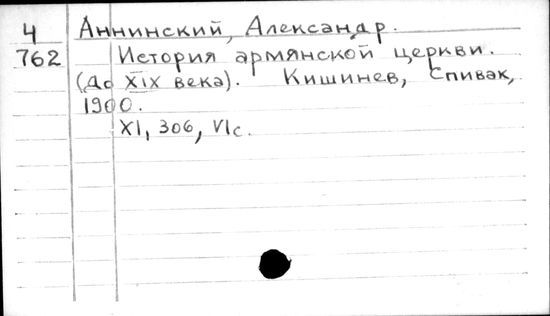 4 Аннинский, Александр.
762 История армянской церкви.
(до XIX века). Кишинев, Спивак,
1900.
XI, 306, VIс.